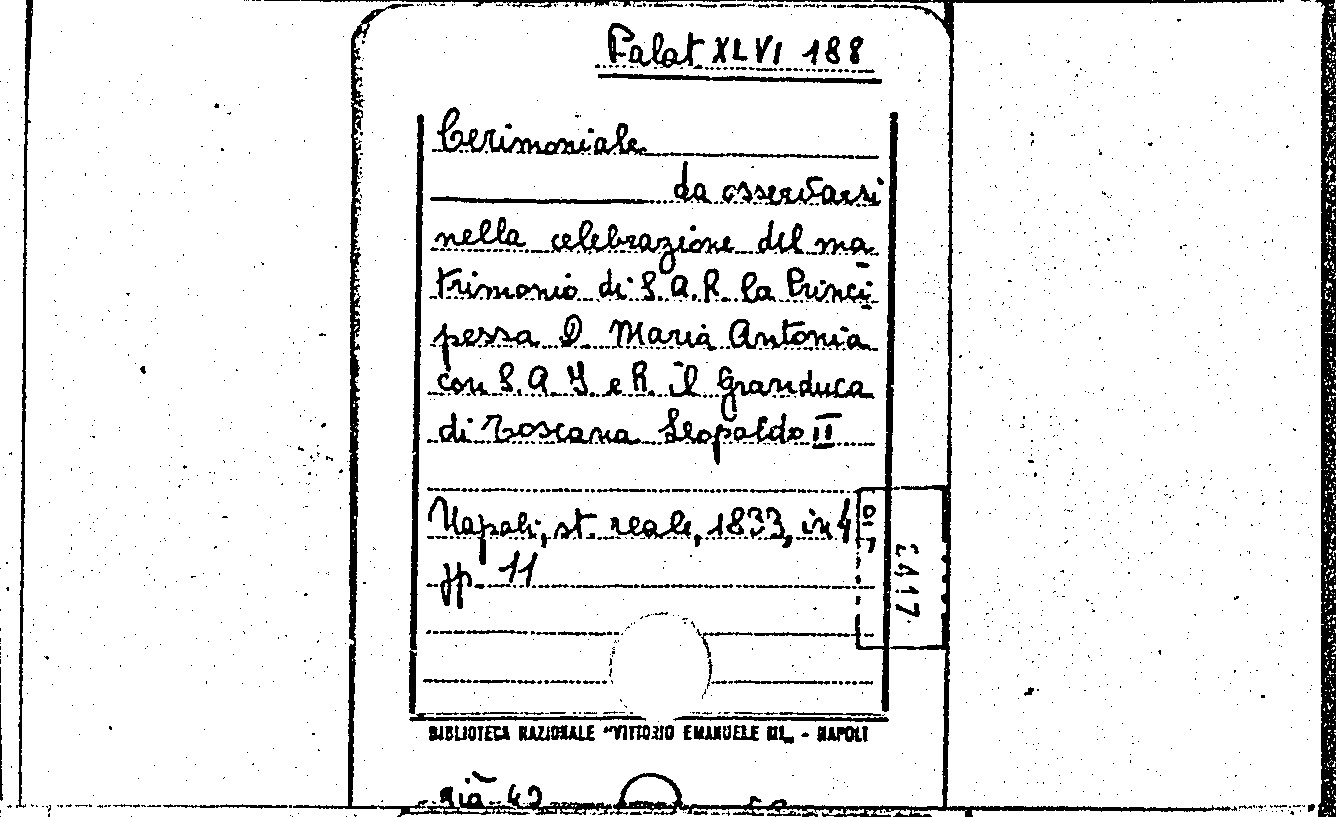 Palat XLVI 188
Cerimoniale
da osservarsi
nella celebrazione del ma
trimonio di S. A. R. la Princi
pessa D. Maria Antonia
con S. A. I. e R. il Granduca
di Toscana Leopoldo II
Napoli, st. reale, 1833, in 4
pp. 11
BIBLIOTECA NAZIONALE "VITTORIO EMANUELE III„ - NAPOLI